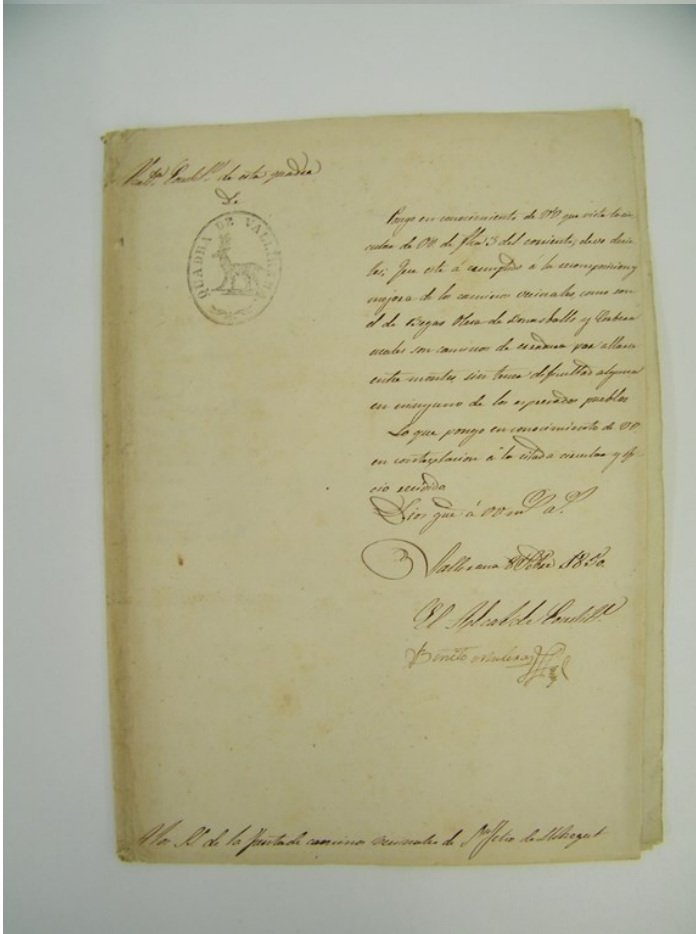 Const.l de esta quadra
de
QUADRA DE VALLIRANA
Pongo en conocimiento de VV que vista la cir
cular de VV de fha 3 del corriente; devo decir
les; Que este á á la recomposicion y
mejora de los caminos vecinales, como son
el de Begas Olesa de Bonasballs y Corbera
cuales son caminos de para
entre montes, sin tener dificultad alguna
en ninguno de los espresados pueblos
Lo que pongo en conocimiento de VV
en contestacion á la citada circular y ofi
cio
Dios gue á VV m.s a.s
Vallirana 8 1850
El Alcalde Const.l
Benito
S.res de la Junta de caminos vecinales de S.n Feliu de Llobregat